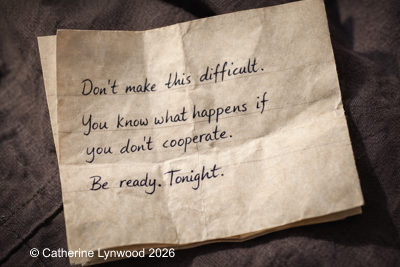 Don't make this difficult.
You know what happens if
you don't cooperate.
Be ready. Tonight.
© Catherine Lynwood 2026